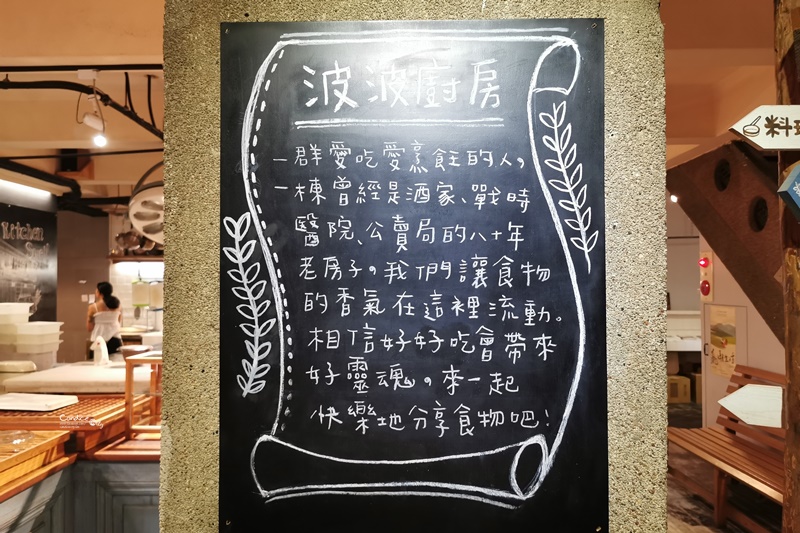 波波廚房
一群愛吃愛烹飪的人。
一棟曾經是酒家、戰時
醫院、公賣局的八十年
老房子。我們讓食物
的香氣在這裡流動。
相信好好吃會帶來
好靈魂。來一起
快樂地分享食物吧!
Kitchen
料